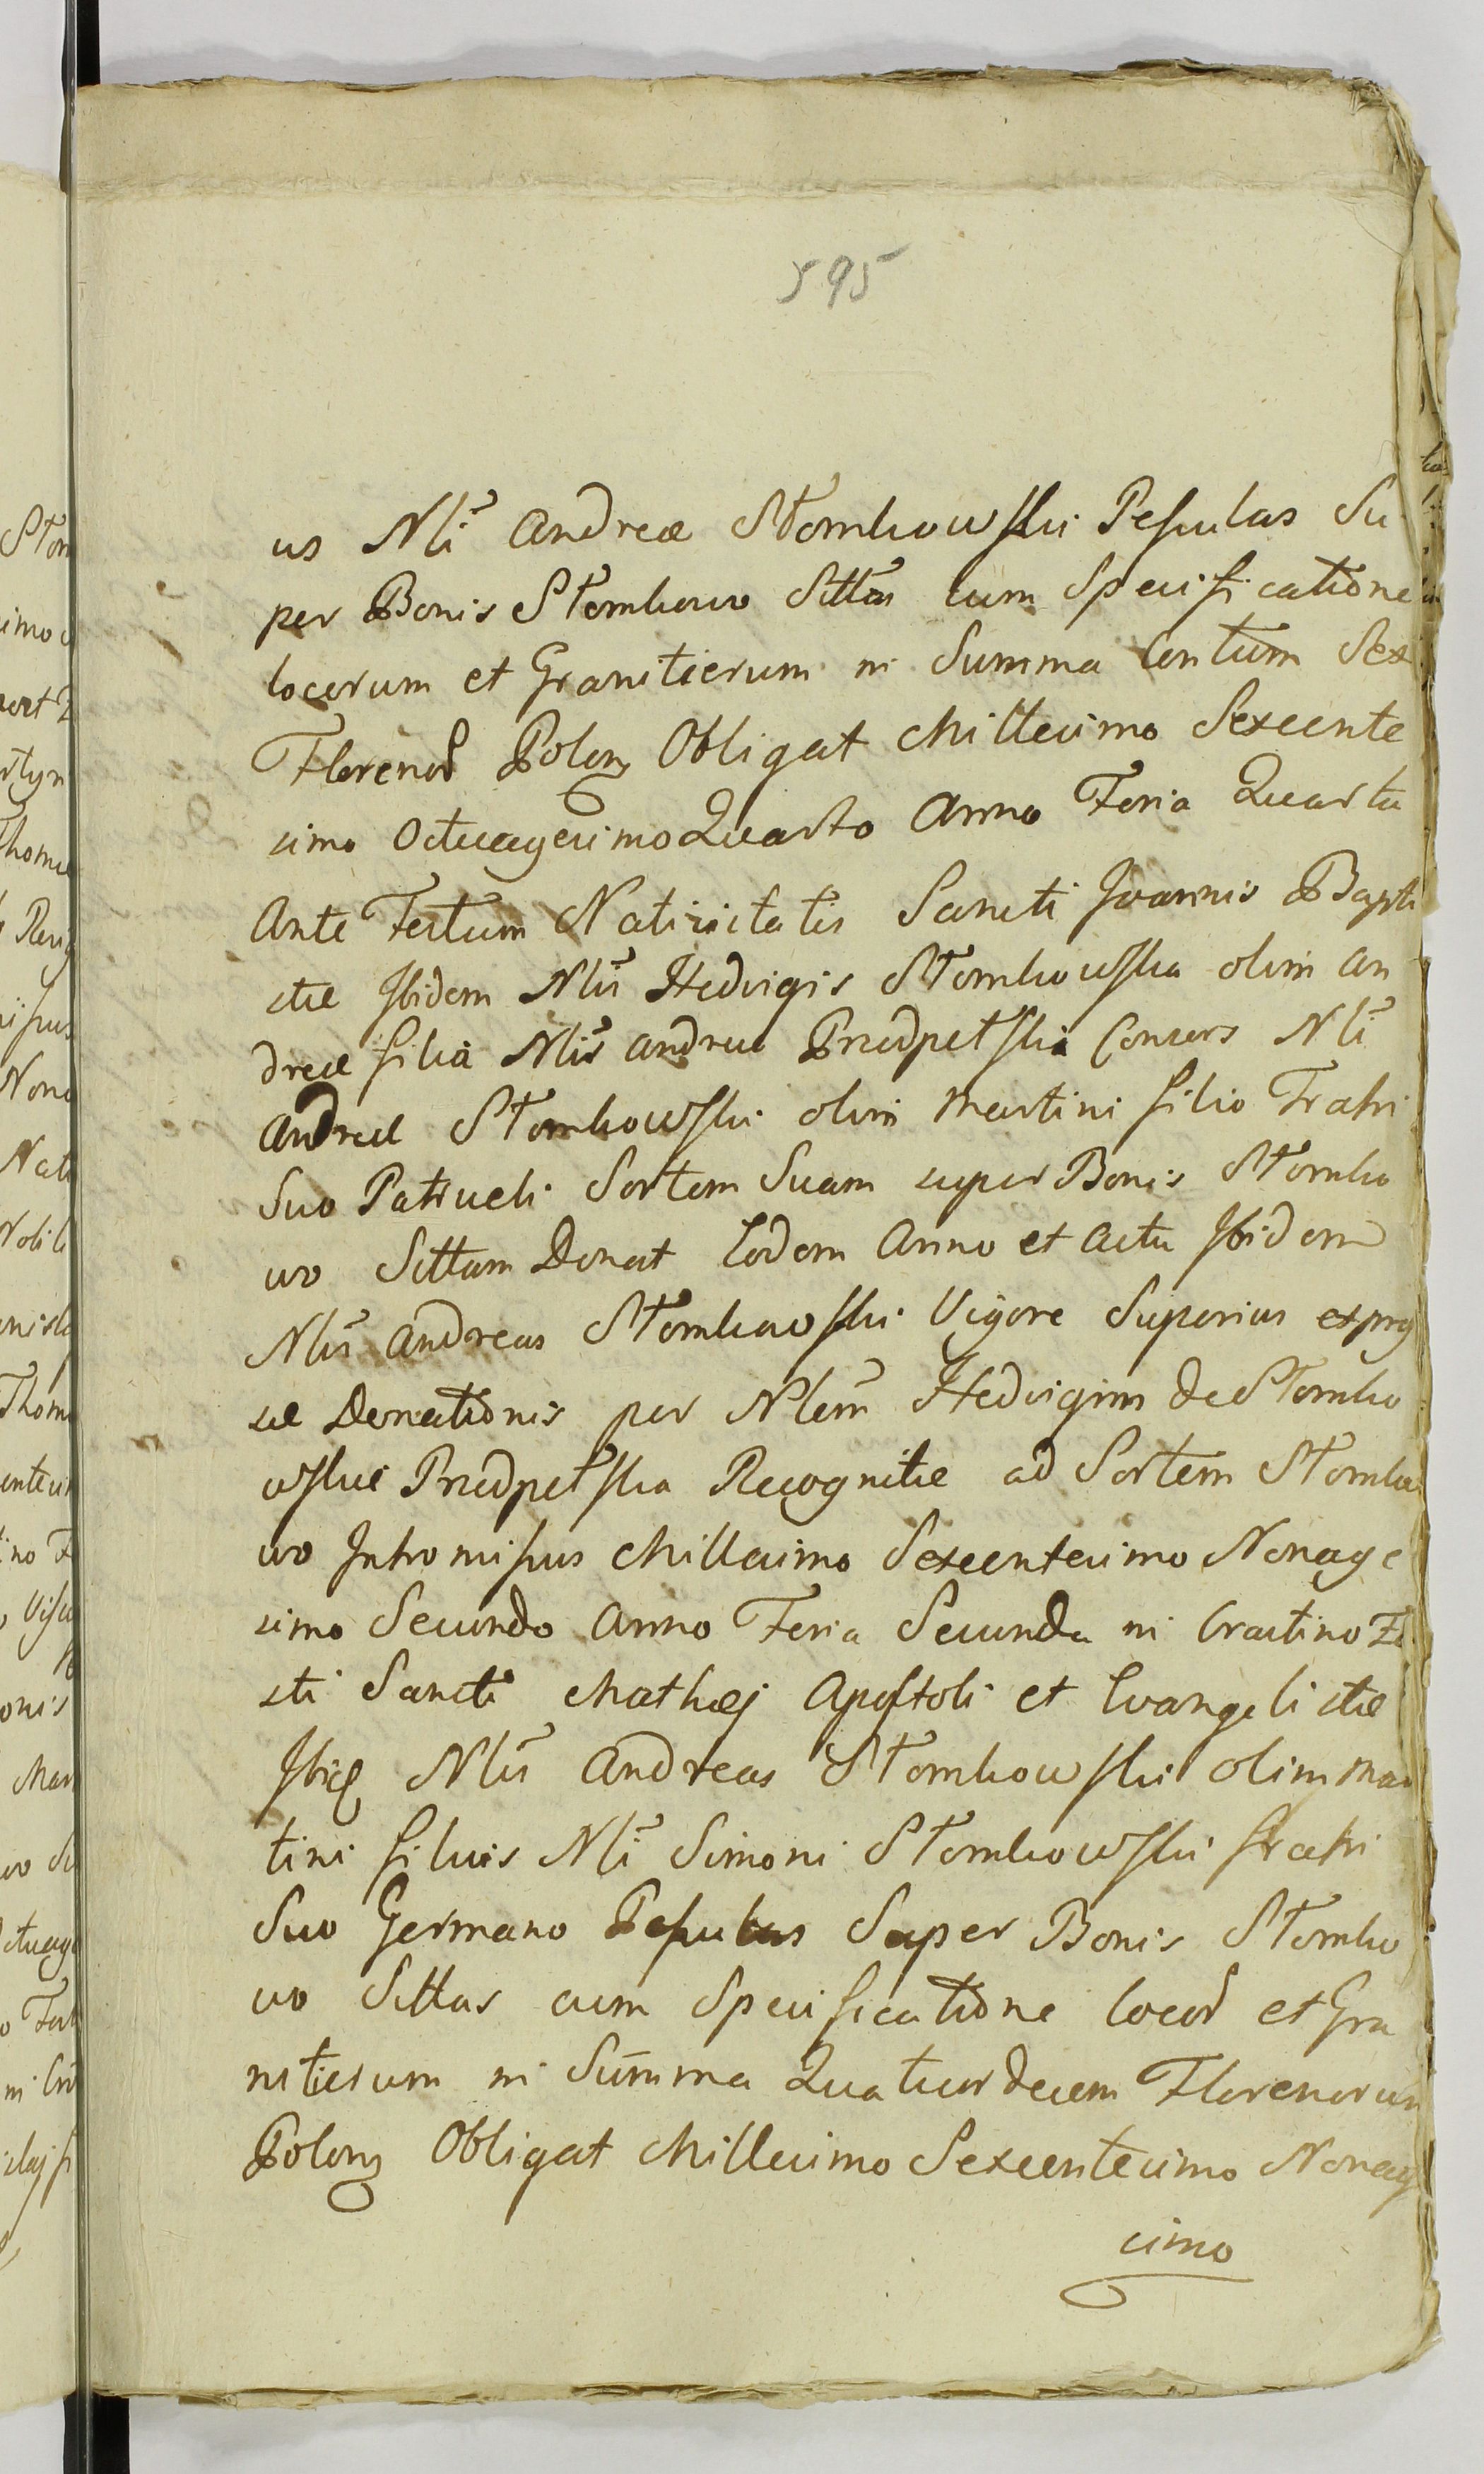 595
us Nli Andreæ Stomkowski Pesulas Su
per Bonis Stomkowo Sittas cum Specificatione
locorum et Granitierum in Summa Centum Sex
Florenor Polon Obligat Millesimo Sexcente
simo Octuagesimo Quarto Anno Feria Quarta
Ante Festum Nativitatis Sancti Joannis Bapti
stæ Ibidem Nlis Hedvigis Stomkowska olim An
dreæ filia Nlis Andreæ Przedpełska Consors Nli
Andreæ Stomkowski olim Martini filio Fratri
Suo Patrueli Sortem Suam super Bonis Stomko
wo Sittam Donat Eodem Anno et Actu Ibidem
Nlis Andreas Stomkowski Vigore Superius expres
sæ Donationis per Nlem Hedvigim de Stomko
wskie Przedpełska Recognitæ ad Sortem Stomko
wo Intromissus Millesimo Sexcentesimo Nonage
simo Secundo Anno Feria Secunda in Crastino Fe
sti Sancti Mathæj Apostoli et Evangelistæ
Ibid Nlis Andreas Stomkowski olim Mar
tini filius Nli Simoni Stomkowski fratri
Suo Germano Pesulas Super Bonis Stomko
wo Sittas cum Specificatione locor et Gra
nitierum in Summa Quatuordecem Florenorum
Polon Obligat Millesimo Sexcentesimo Nonag
simo